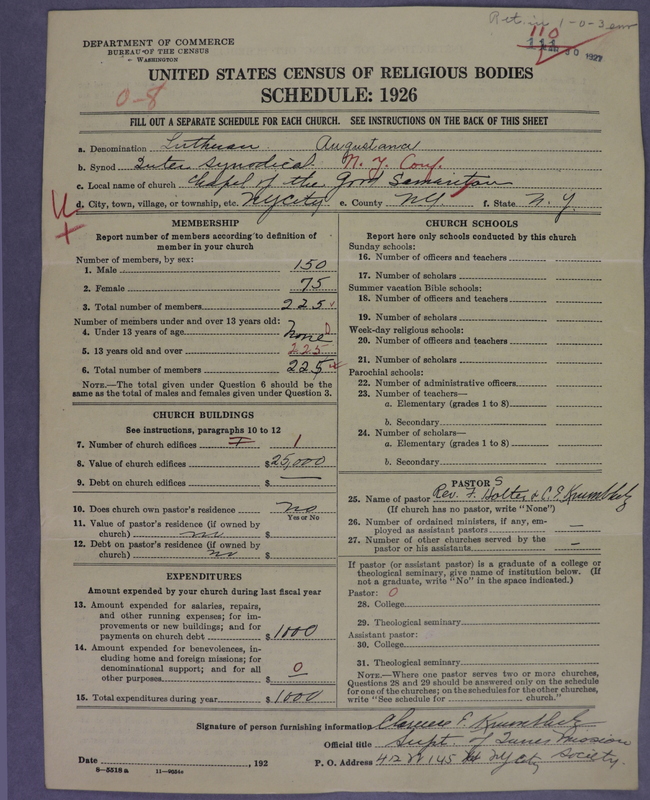 Ret. in 1-0-3
110
111
30 1927
DEPARTMENT OF COMMERCE
BUREAU OF THE CENSUS
WASHINGTON
UNITED STATES CENSUS OF RELIGIOUS BODIES
SCHEDULE: 1926
0-8
FILL OUT A SEPARATE SCHEDULE FOR EACH CHURCH. SEE INSTRUCTIONS ON THE BACK OF THIS SHEET
a. Denomination Lutheran Augustana
b. Synod Inter Synodical N. Y. Conf.
c. Local name of church Chapel of the Good Samaritan
d. City, town, village, or township, etc. NY City e. County NY f. State N. Y
MEMBERSHIP
Report number of members according to definition of
member in your church
Number of members, by sex:
1. Male 150
2. Female 75
3. Total number of members 225
Number of members under and over 13 years old:
4. Under 13 years of age none 0
5. 13 years old and over 225
6. Total number of members 225
NOTE.—The total given under Question 6 should be the
same as the total of males and females given under Question 3.
CHURCH BUILDINGS
See instructions, paragraphs 10 to 12
7. Number of church edifices I 1
8. Value of church edifices $25,000
9. Debt on church edifices $ —
10. Does church own pastor's residence no
Yes or No
11. Value of pastor's residence (if owned by
church) no $
12. Debt on pastor's residence (if owned by
church) no $
EXPENDITURES
Amount expended by your church during last fiscal year
13. Amount expended for salaries, repairs,
and other running expenses; for im-
provements or new buildings; and for
payments on church debt $ 1000
14. Amount expended for benevolences, in-
cluding home and foreign missions; for
denominational support; and for all
other purposes $ 0
15. Total expenditures during year $ 1000
CHURCH SCHOOLS
Report here only schools conducted by this church
Sunday schools:
16. Number of officers and teachers
17. Number of scholars
Summer vacation Bible schools:
18. Number of officers and teachers
19. Number of scholars
Week-day religious schools:
20. Number of officers and teachers
21. Number of scholars
Parochial schools:
22. Number of administrative officers
23. Number of teachers—
a. Elementary (grades 1 to 8)
b. Secondary
24. Number of scholars—
a. Elementary (grades 1 to 8)
b. Secondary
PASTOR S
25. Name of pastor Rev. F. Holter & C. E. Krumbholz
(If church has no pastor, write "None")
26. Number of ordained ministers, if any, em-
ployed as assistant pastors —
27. Number of other churches served by the
pastor or his assistants —
If pastor (or assistant pastor) is a graduate of a college or
theological seminary, give name of institution below. (If
not a graduate, write "No" in the space indicated.)
Pastor: 0
28. College
29. Theological seminary
Assistant pastor:
30. College
31. Theological seminary
NOTE.—Where one pastor serves two or more churches,
Questions 28 and 29 should be answered only on the schedule
for one of the churches; on the schedules for the other churches,
write "See schedule for church."
Signature of person furnishing information Clarence E. Krumbholz
Official title Supt. of Inner Mission
Society.
Date , 192 P. O. Address 412 W 145 NY City
8—5518 a 11—9554